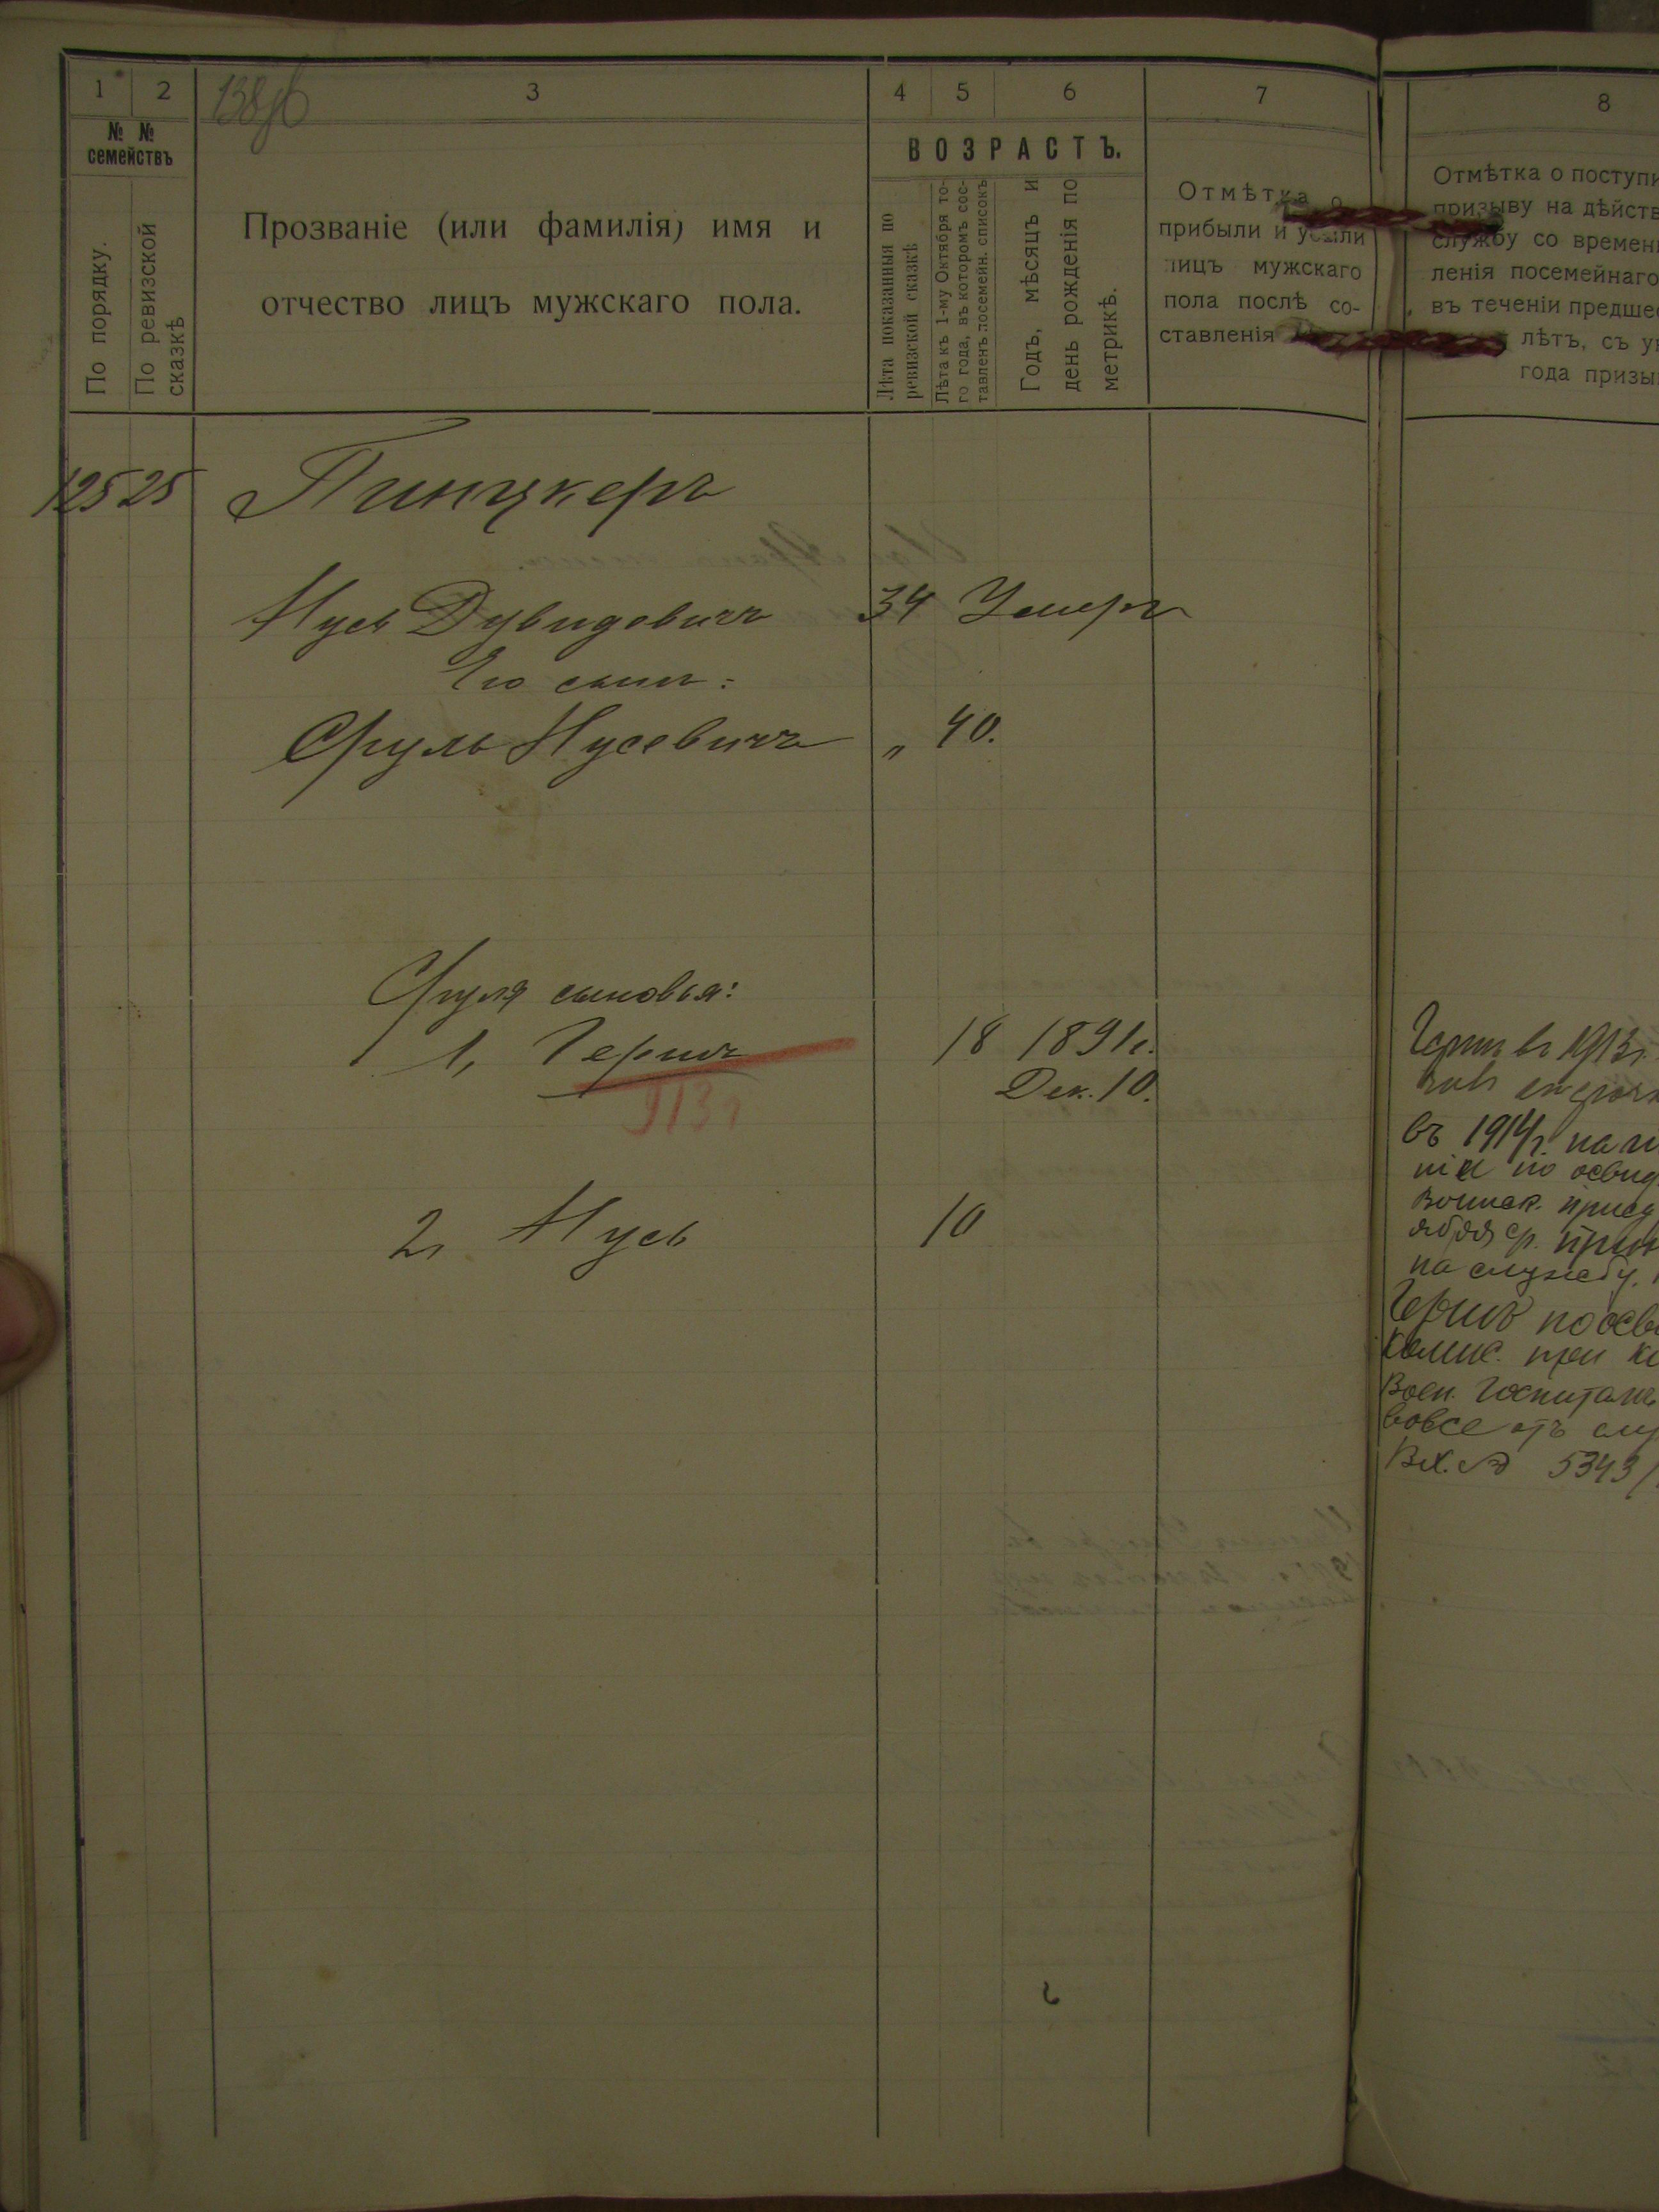 1 2 3 4 5 6 7 8
138об
№ № семействъ
По порядку.
По ревизской сказкѣ
Прозваніе (или фамилія) имя и
отчество лицъ мужскаго пола.
ВОЗРАСТЪ.
Лѣта показанныя по
ревизской сказкѣ
Лѣта къ 1-му Октября то-
го года, въ которомъ сос-
тавленъ посемейн. списокъ
Годъ, мѣсяцъ и
день рожденія по
метрикѣ.
Отмѣтка о
прибыли и убыли
лицъ мужскаго
пола послѣ со-
ставленія
Отмѣтка о поступи
призыву на дѣйств
службу со времен
ленія посемейнаго
въ теченіи предше
лѣтъ, съ у
года призы
125 25 Пинцкеръ
Нусь Дувидовичъ 34 Умеръ
Его сынъ:
Сруль Нусевичъ „ 40.
Сруля сыновья:
1, Гершъ 18 1891г.
Дек. 10.
913г
2, Нусь 10
Гершъ въ 1913г.
въ 1914г. на
нія по освид
воинск. присд
ября ср. прин
на службу.
Гершъ по осв
Комис. при
Воен. Госпитал
вовсе отъ слу
Вх. № 5343/